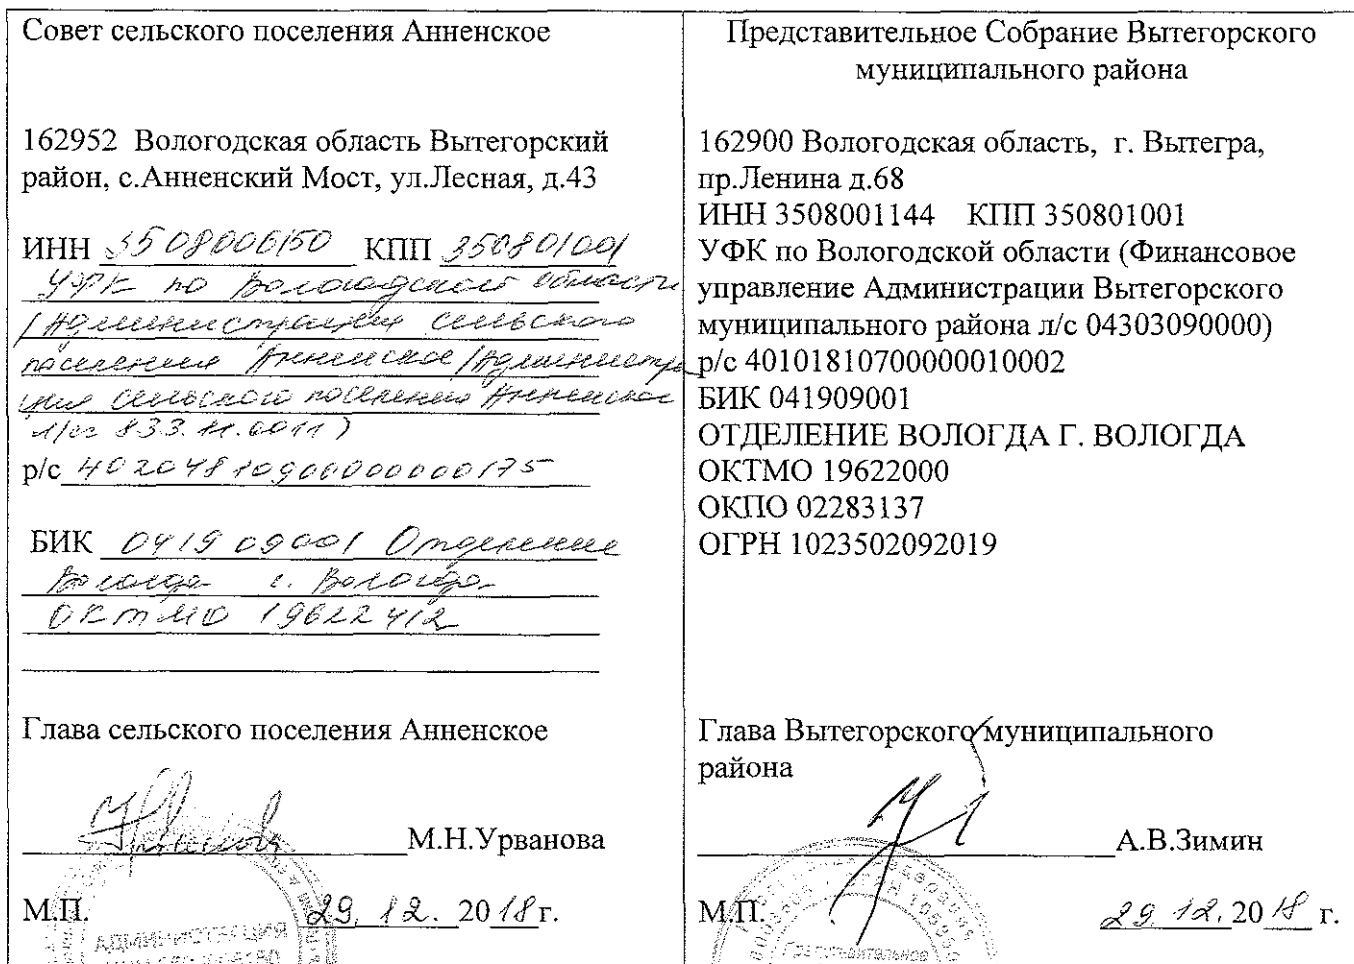 Совет сельского поселения Анненское
162952 Вологодская область Вытегорский
район, с.Анненский Мост, ул.Лесная, д.43
ИНН 3508006150 КПП 350801001
УФК по Вологодской области
(Администрация сельского
поселения Анненское (Администра
ция сельского поселения Анненское
л/сч 833.11.0011)
р/с 40204810900000000175
БИК 041909001 Отделение
Вологда г. Вологда
ОКТМО 19622412
Глава сельского поселения Анненское
М.Н.Урванова
М.П. 29. 12. 2018 г.
АДМИНИСТРАЦИЯ
Представительное Собрание Вытегорского
муниципального района
162900 Вологодская область, г. Вытегра,
пр.Ленина д.68
ИНН 3508001144 КПП 350801001
УФК по Вологодской области (Финансовое
управление Администрации Вытегорского
муниципального района л/с 04303090000)
р/с 40101810700000010002
БИК 041909001
ОТДЕЛЕНИЕ ВОЛОГДА Г. ВОЛОГДА
ОКТМО 19622000
ОКПО 02283137
ОГРН 1023502092019
Глава Вытегорского муниципального
района
А.В.Зимин
М.П. 29. 12. 2018 г.
Представительное